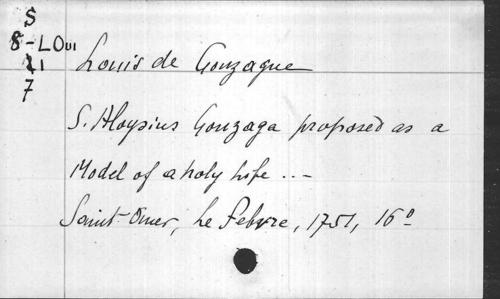 S
8-LOUI
Louis de Gonzague
7
S. Aloysius Gonzaga proposed as a
Model of a holy life ...
Saint-Omer, Le Febvre, 1751, 16º